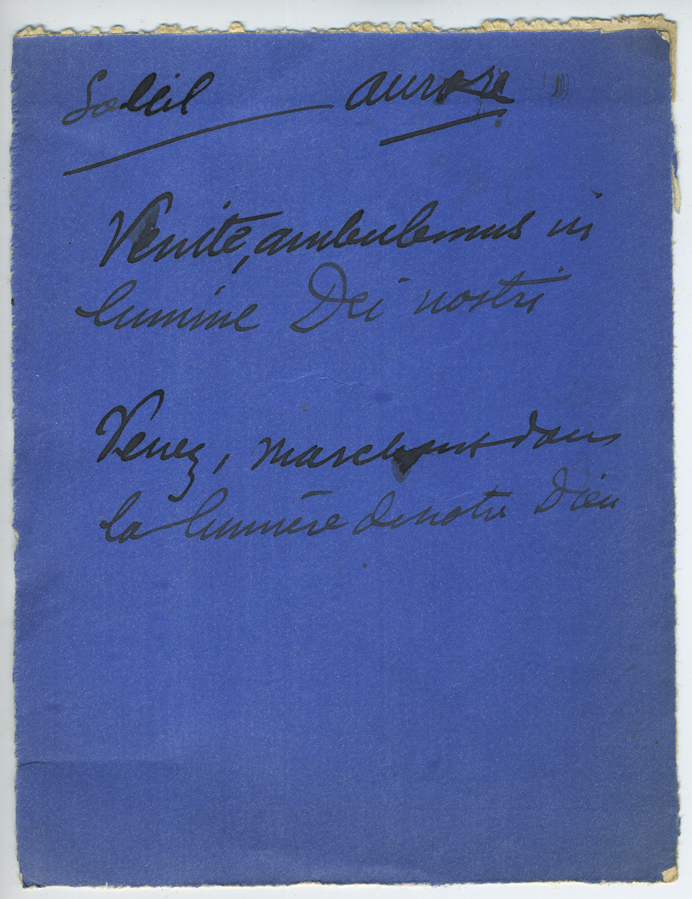 Soleil aurore
Venite, ambulemus in
lumine Dei nostri
Venez, marchons dans
la lumière de notre Dieu